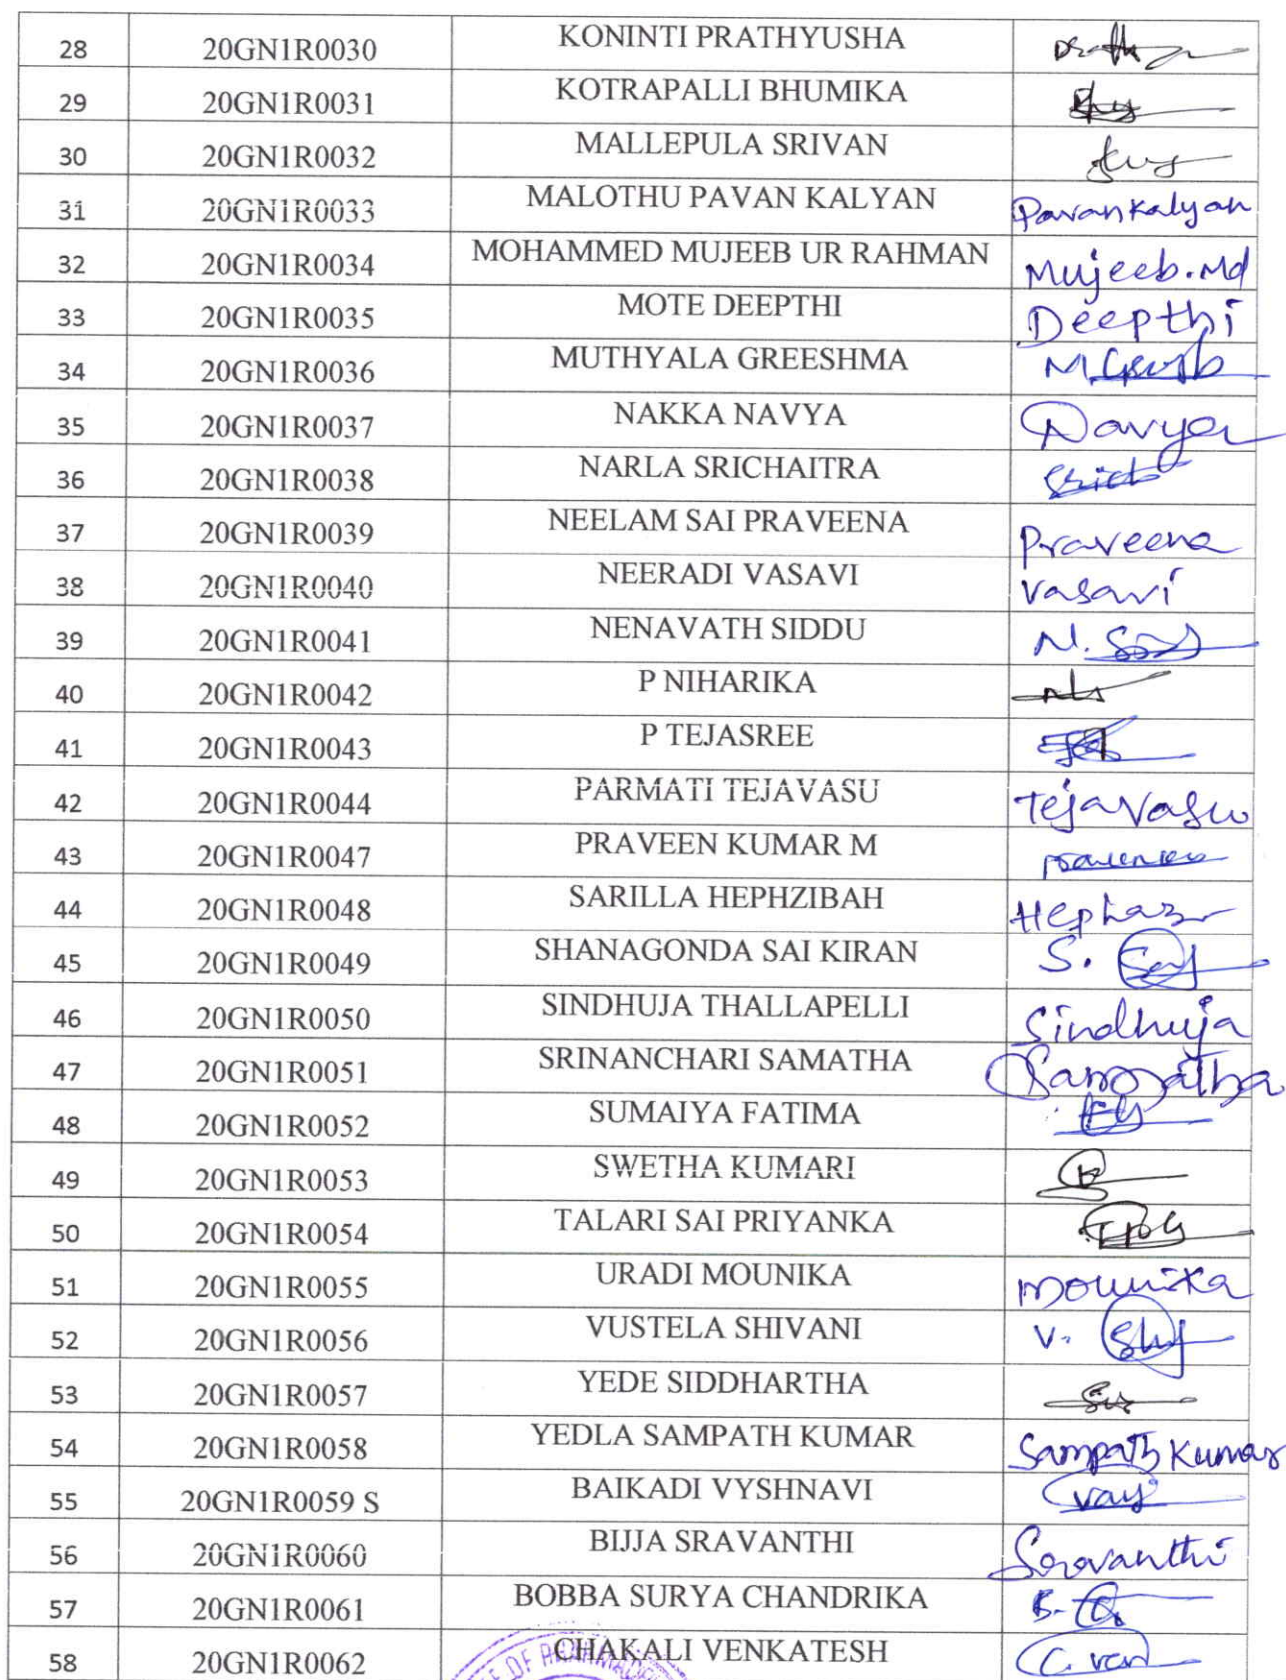 28 20GN1R0030 KONINTI PRATHYUSHA
29 20GN1R0031 KOTRAPALLI BHUMIKA
30 20GN1R0032 MALLEPULA SRIVAN
31 20GN1R0033 MALOTHU PAVAN KALYAN Pavankalyan
32 20GN1R0034 MOHAMMED MUJEEB UR RAHMAN Mujeeb.Md
33 20GN1R0035 MOTE DEEPTHI Deepthi
34 20GN1R0036 MUTHYALA GREESHMA
35 20GN1R0037 NAKKA NAVYA Navya
36 20GN1R0038 NARLA SRICHAITRA
37 20GN1R0039 NEELAM SAI PRAVEENA Praveena
38 20GN1R0040 NEERADI VASAVI Vasavi
39 20GN1R0041 NENAVATH SIDDU N.
40 20GN1R0042 P NIHARIKA
41 20GN1R0043 P TEJASREE
42 20GN1R0044 PARMATI TEJAVASU Tejavasu
43 20GN1R0047 PRAVEEN KUMAR M
44 20GN1R0048 SARILLA HEPHZIBAH
45 20GN1R0049 SHANAGONDA SAI KIRAN S.
46 20GN1R0050 SINDHUJA THALLAPELLI Sindhuja
47 20GN1R0051 SRINANCHARI SAMATHA
48 20GN1R0052 SUMAIYA FATIMA
49 20GN1R0053 SWETHA KUMARI
50 20GN1R0054 TALARI SAI PRIYANKA
51 20GN1R0055 URADI MOUNIKA Mounika
52 20GN1R0056 VUSTELA SHIVANI V.
53 20GN1R0057 YEDE SIDDHARTHA
54 20GN1R0058 YEDLA SAMPATH KUMAR Sampath Kumar
55 20GN1R0059 S BAIKADI VYSHNAVI
56 20GN1R0060 BIJJA SRAVANTHI Sravanthi
57 20GN1R0061 BOBBA SURYA CHANDRIKA B.
58 20GN1R0062 CHAKALI VENKATESH